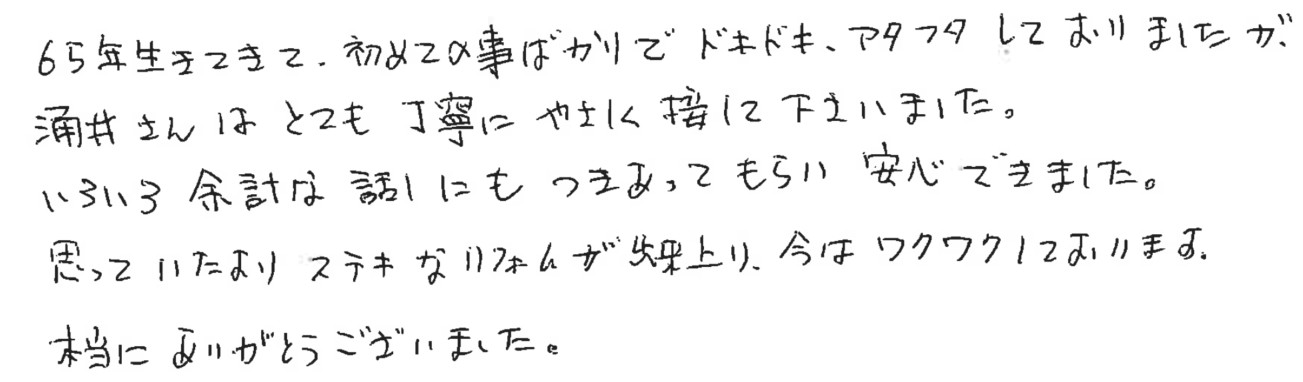 65年生きてきて、初めての事ばかりでドキドキ、アタフタしておりましたが、
涌井さんはとても丁寧にやさしく接して下さいました。
いろいろ余計な話しにもつきあってもらい安心できました。
思っていたよりステキなリフォムが出来上り、今はワクワクしております。
本当にありがとうございました。